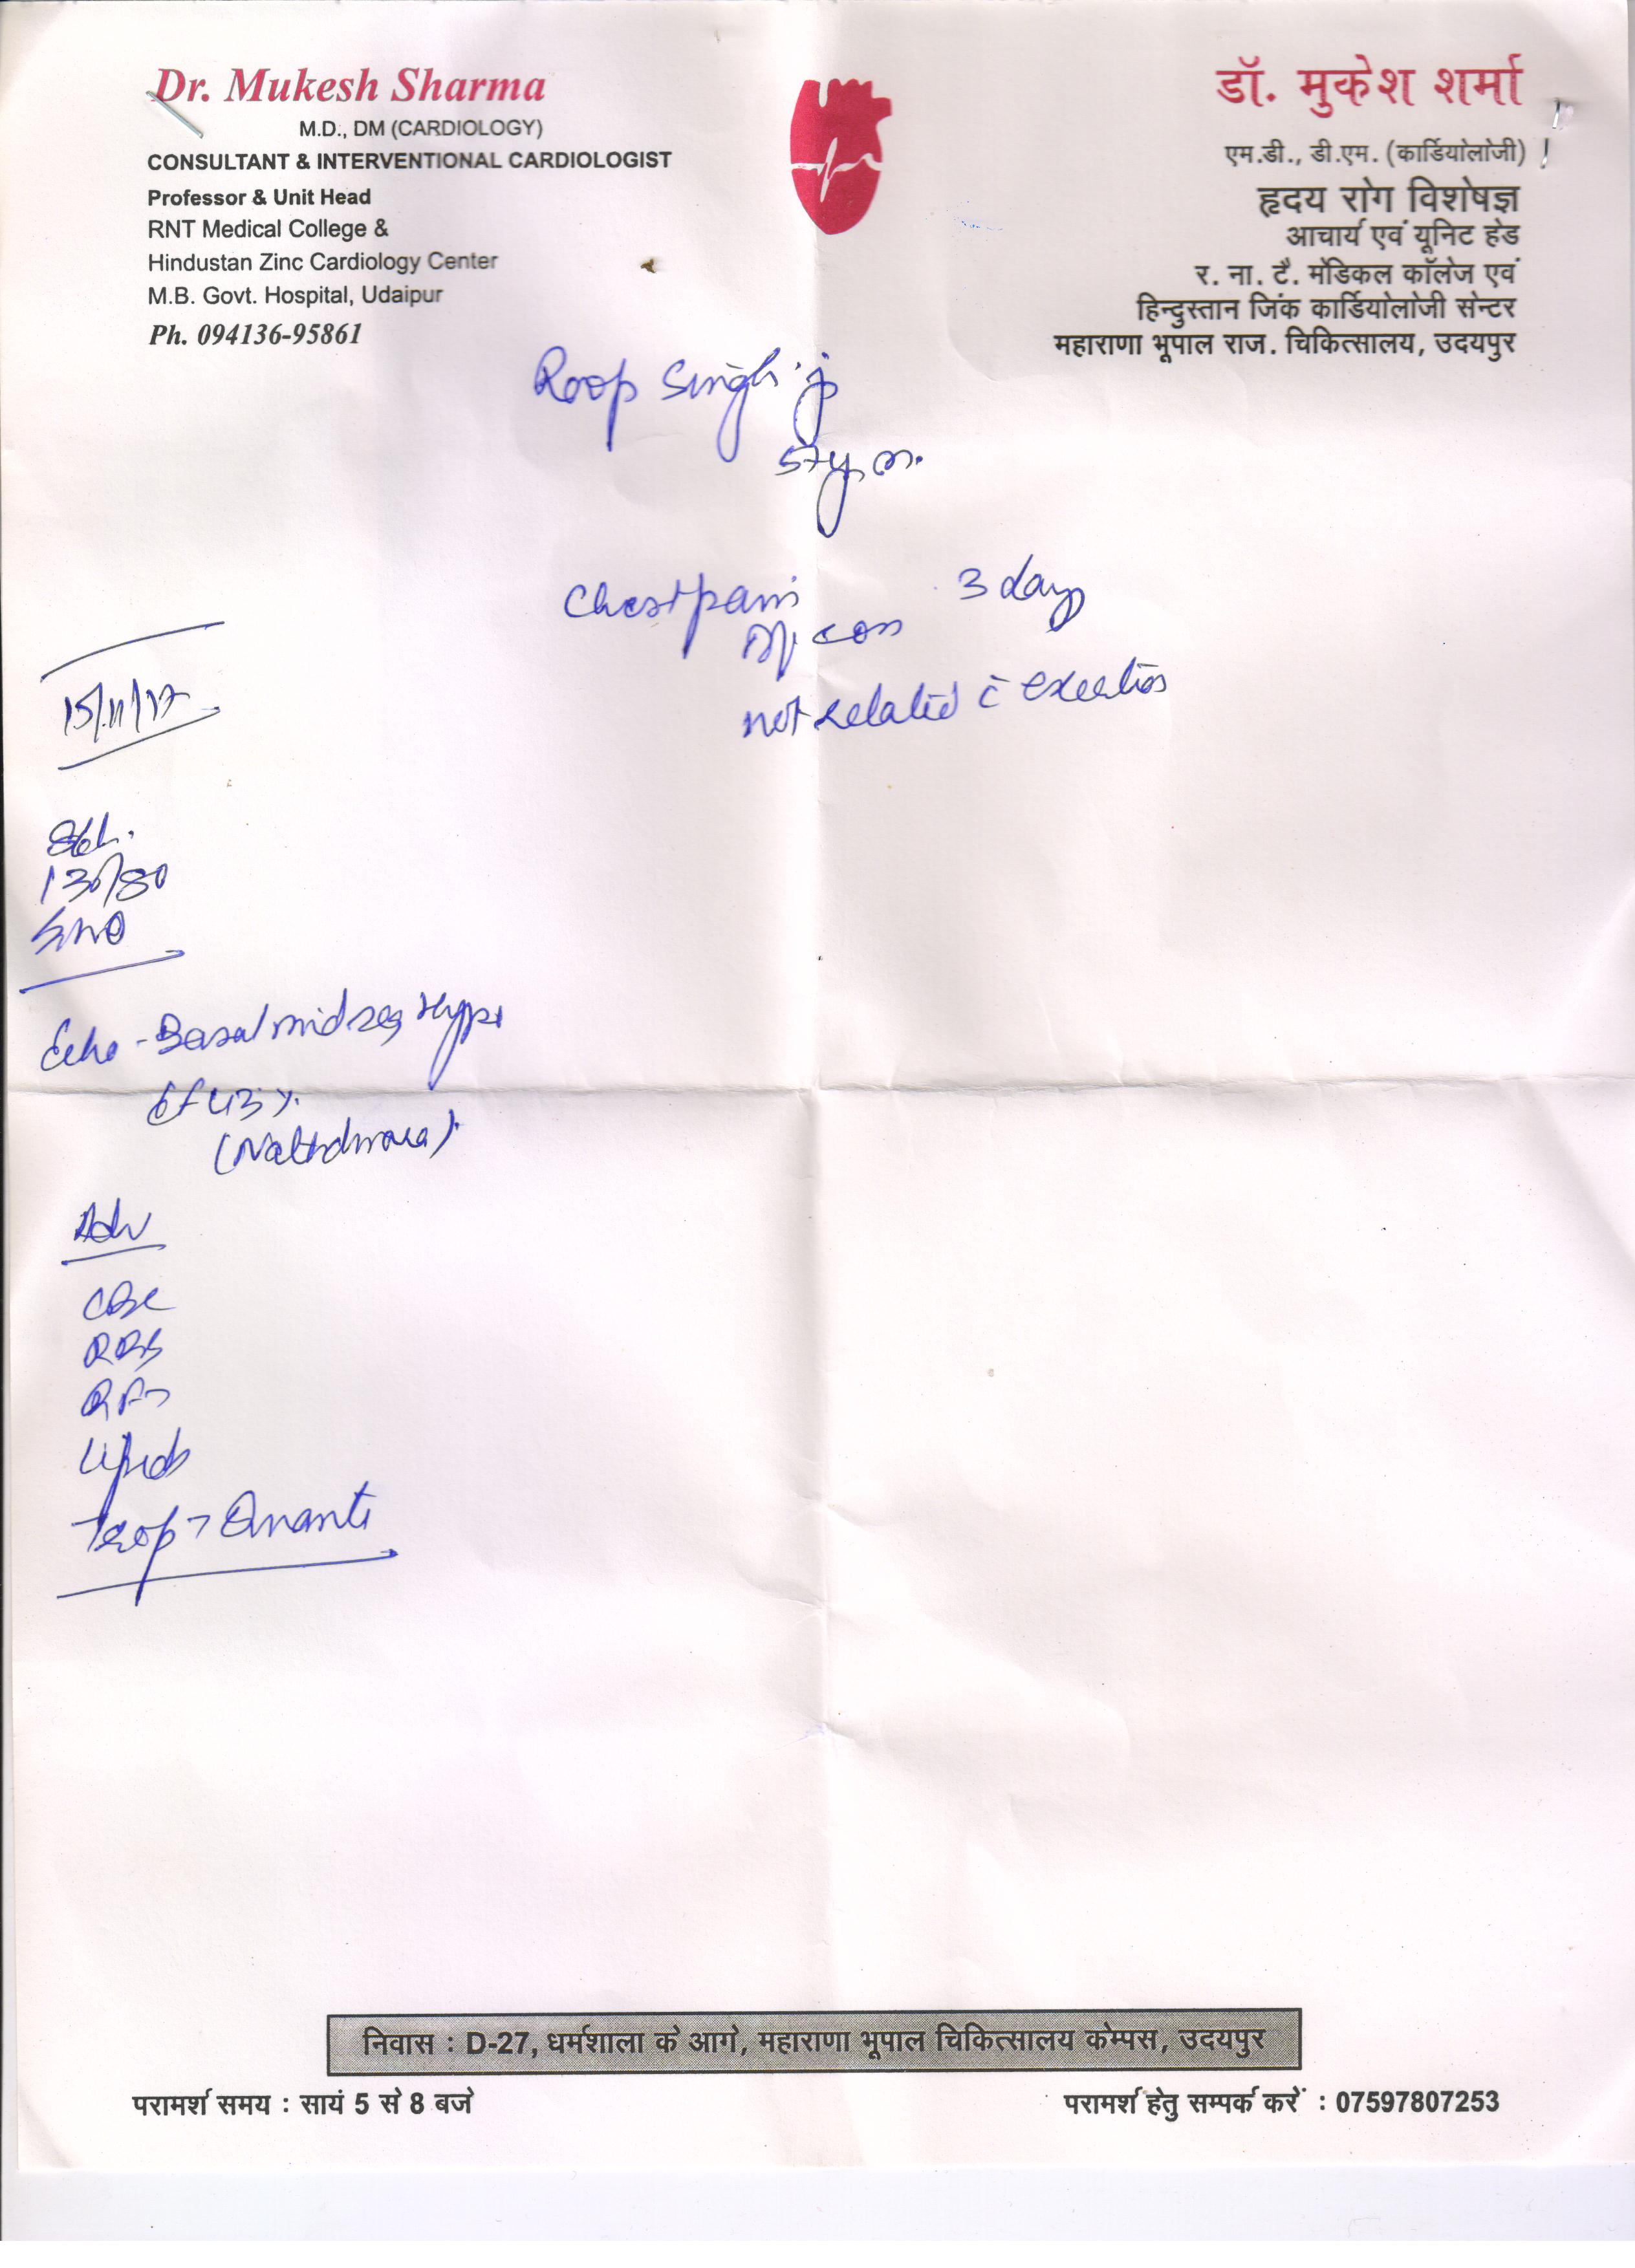 Dr. Mukesh Sharma
M.D., DM (CARDIOLOGY)
CONSULTANT & INTERVENTIONAL CARDIOLOGIST
Professor & Unit Head
RNT Medical College &
Hindustan Zinc Cardiology Center
M.B. Govt. Hospital, Udaipur
Ph. 094136-95861
डॉ. मुकेश शर्मा
एम.डी., डी.एम. (कार्डियोलोजी)
हृदय रोग विशेषज्ञ
आचार्य एवं यूनिट हेड
र. ना. टै. मेडिकल कॉलेज एवं
हिन्दुस्तान जिंक कार्डियोलोजी सेन्टर
महाराणा भूपाल राज. चिकित्सालय, उदयपुर
Roop Singh ji
57y m.
Chest pain 3 day
not related c̄ exertion
15/11/17
130/80
Echo - Basal mid seg Hypo
EF 43%
(Nathdwara)
Adv
CBC
RBS
RFT
Lipids
Trop T Quanti
निवास : D-27, धर्मशाला के आगे, महाराणा भूपाल चिकित्सालय केम्पस, उदयपुर
परामर्श समय : सायं 5 से 8 बजे
परामर्श हेतु सम्पर्क करें : 07597807253